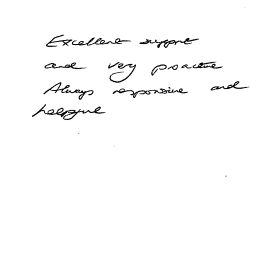 Excellent support
and very proactive
Always responsive and
helpful